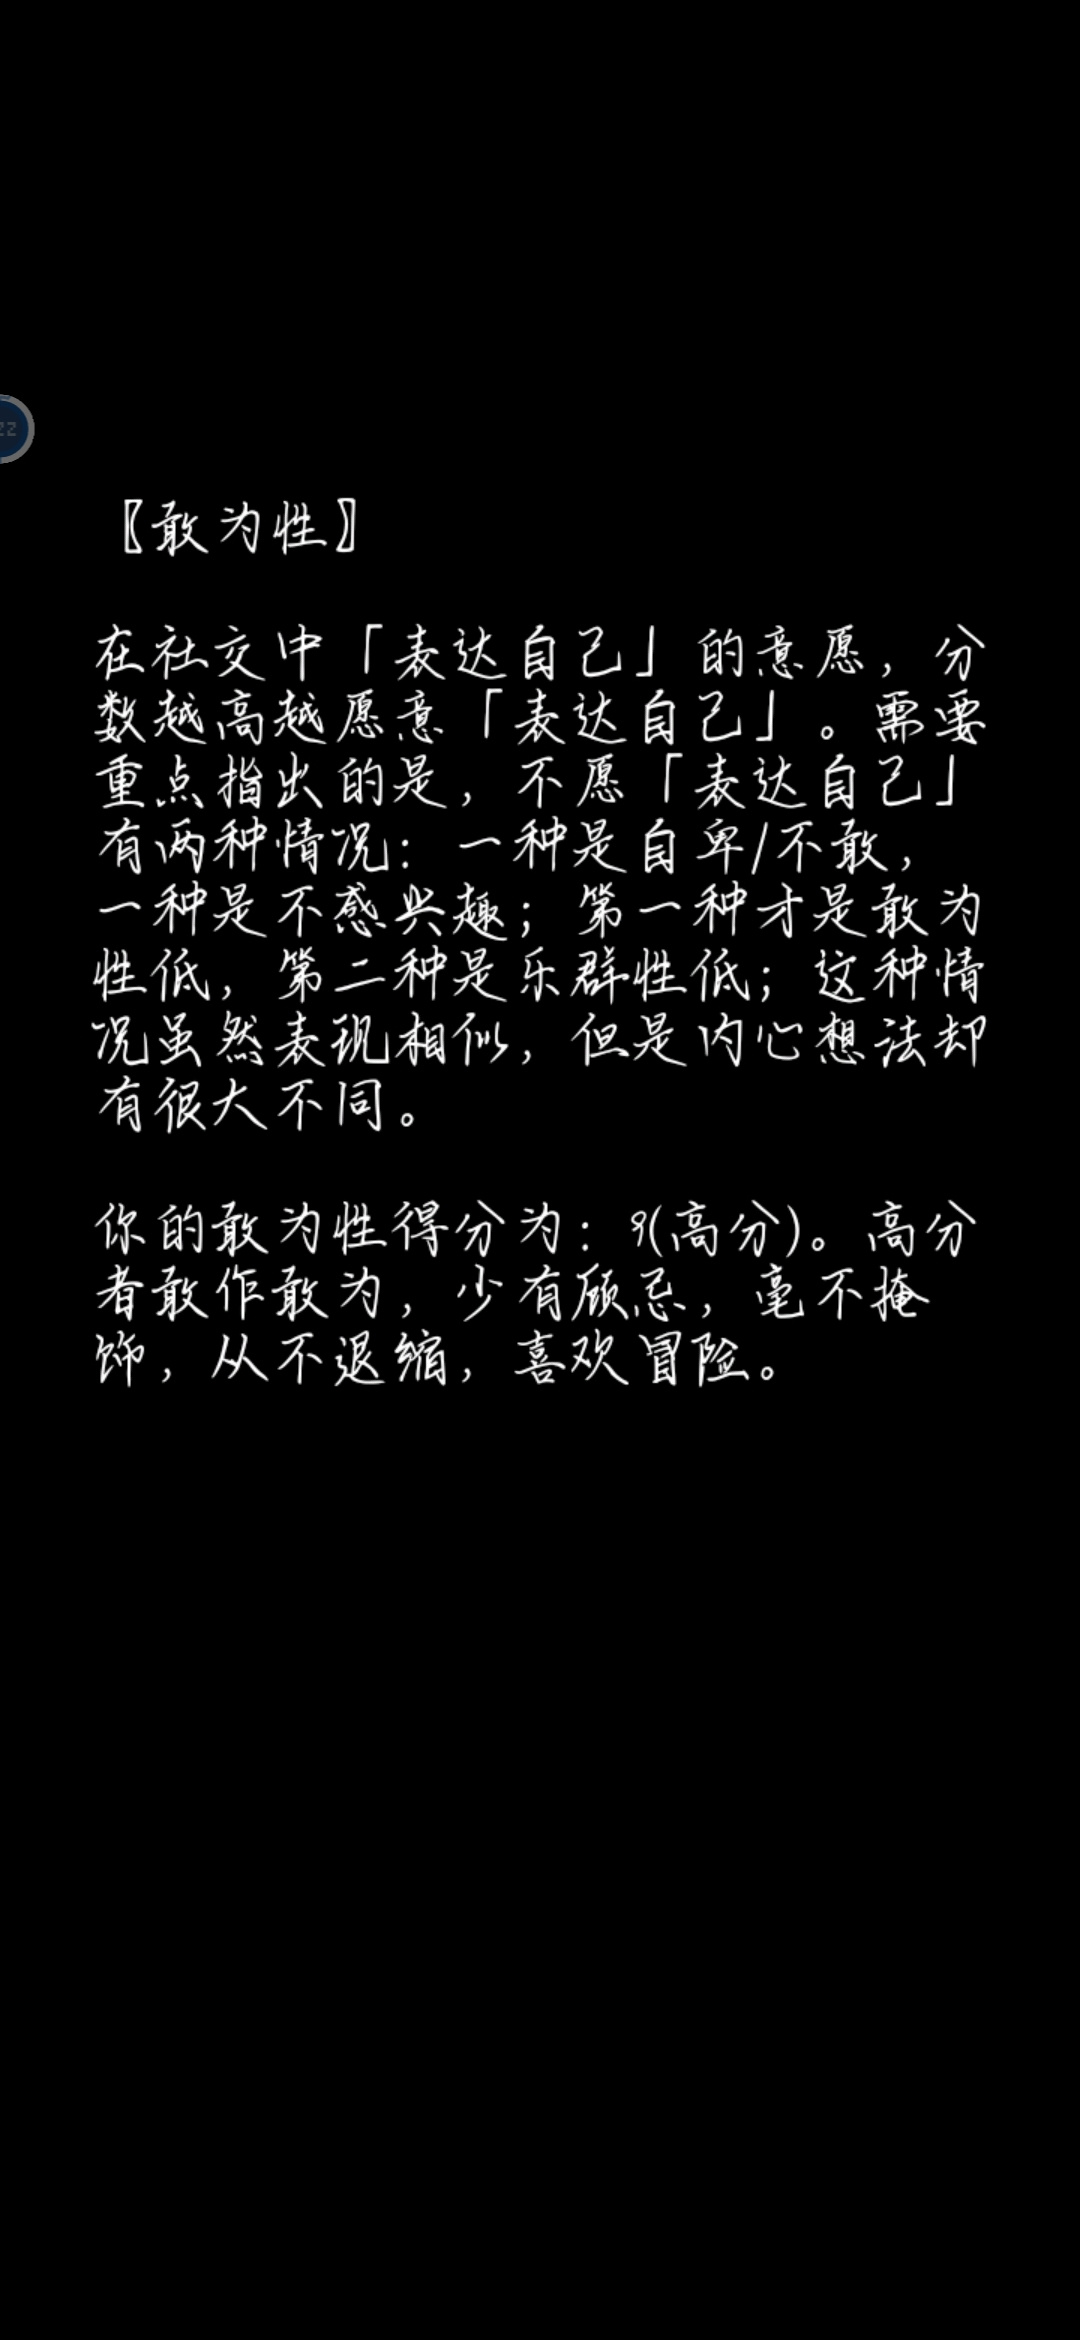 22
〖敢为性〗
在社交中「表达自己」的意愿，分
数越高越愿意「表达自己」。需要
重点指出的是，不愿「表达自己」
有两种情况：一种是自卑/不敢，
一种是不感兴趣；第一种才是敢为
性低，第二种是乐群性低；这种情
况虽然表现相似，但是内心想法却
有很大不同。
你的敢为性得分为：9(高分)。高分
者敢作敢为，少有顾忌，毫不掩
饰，从不退缩，喜欢冒险。